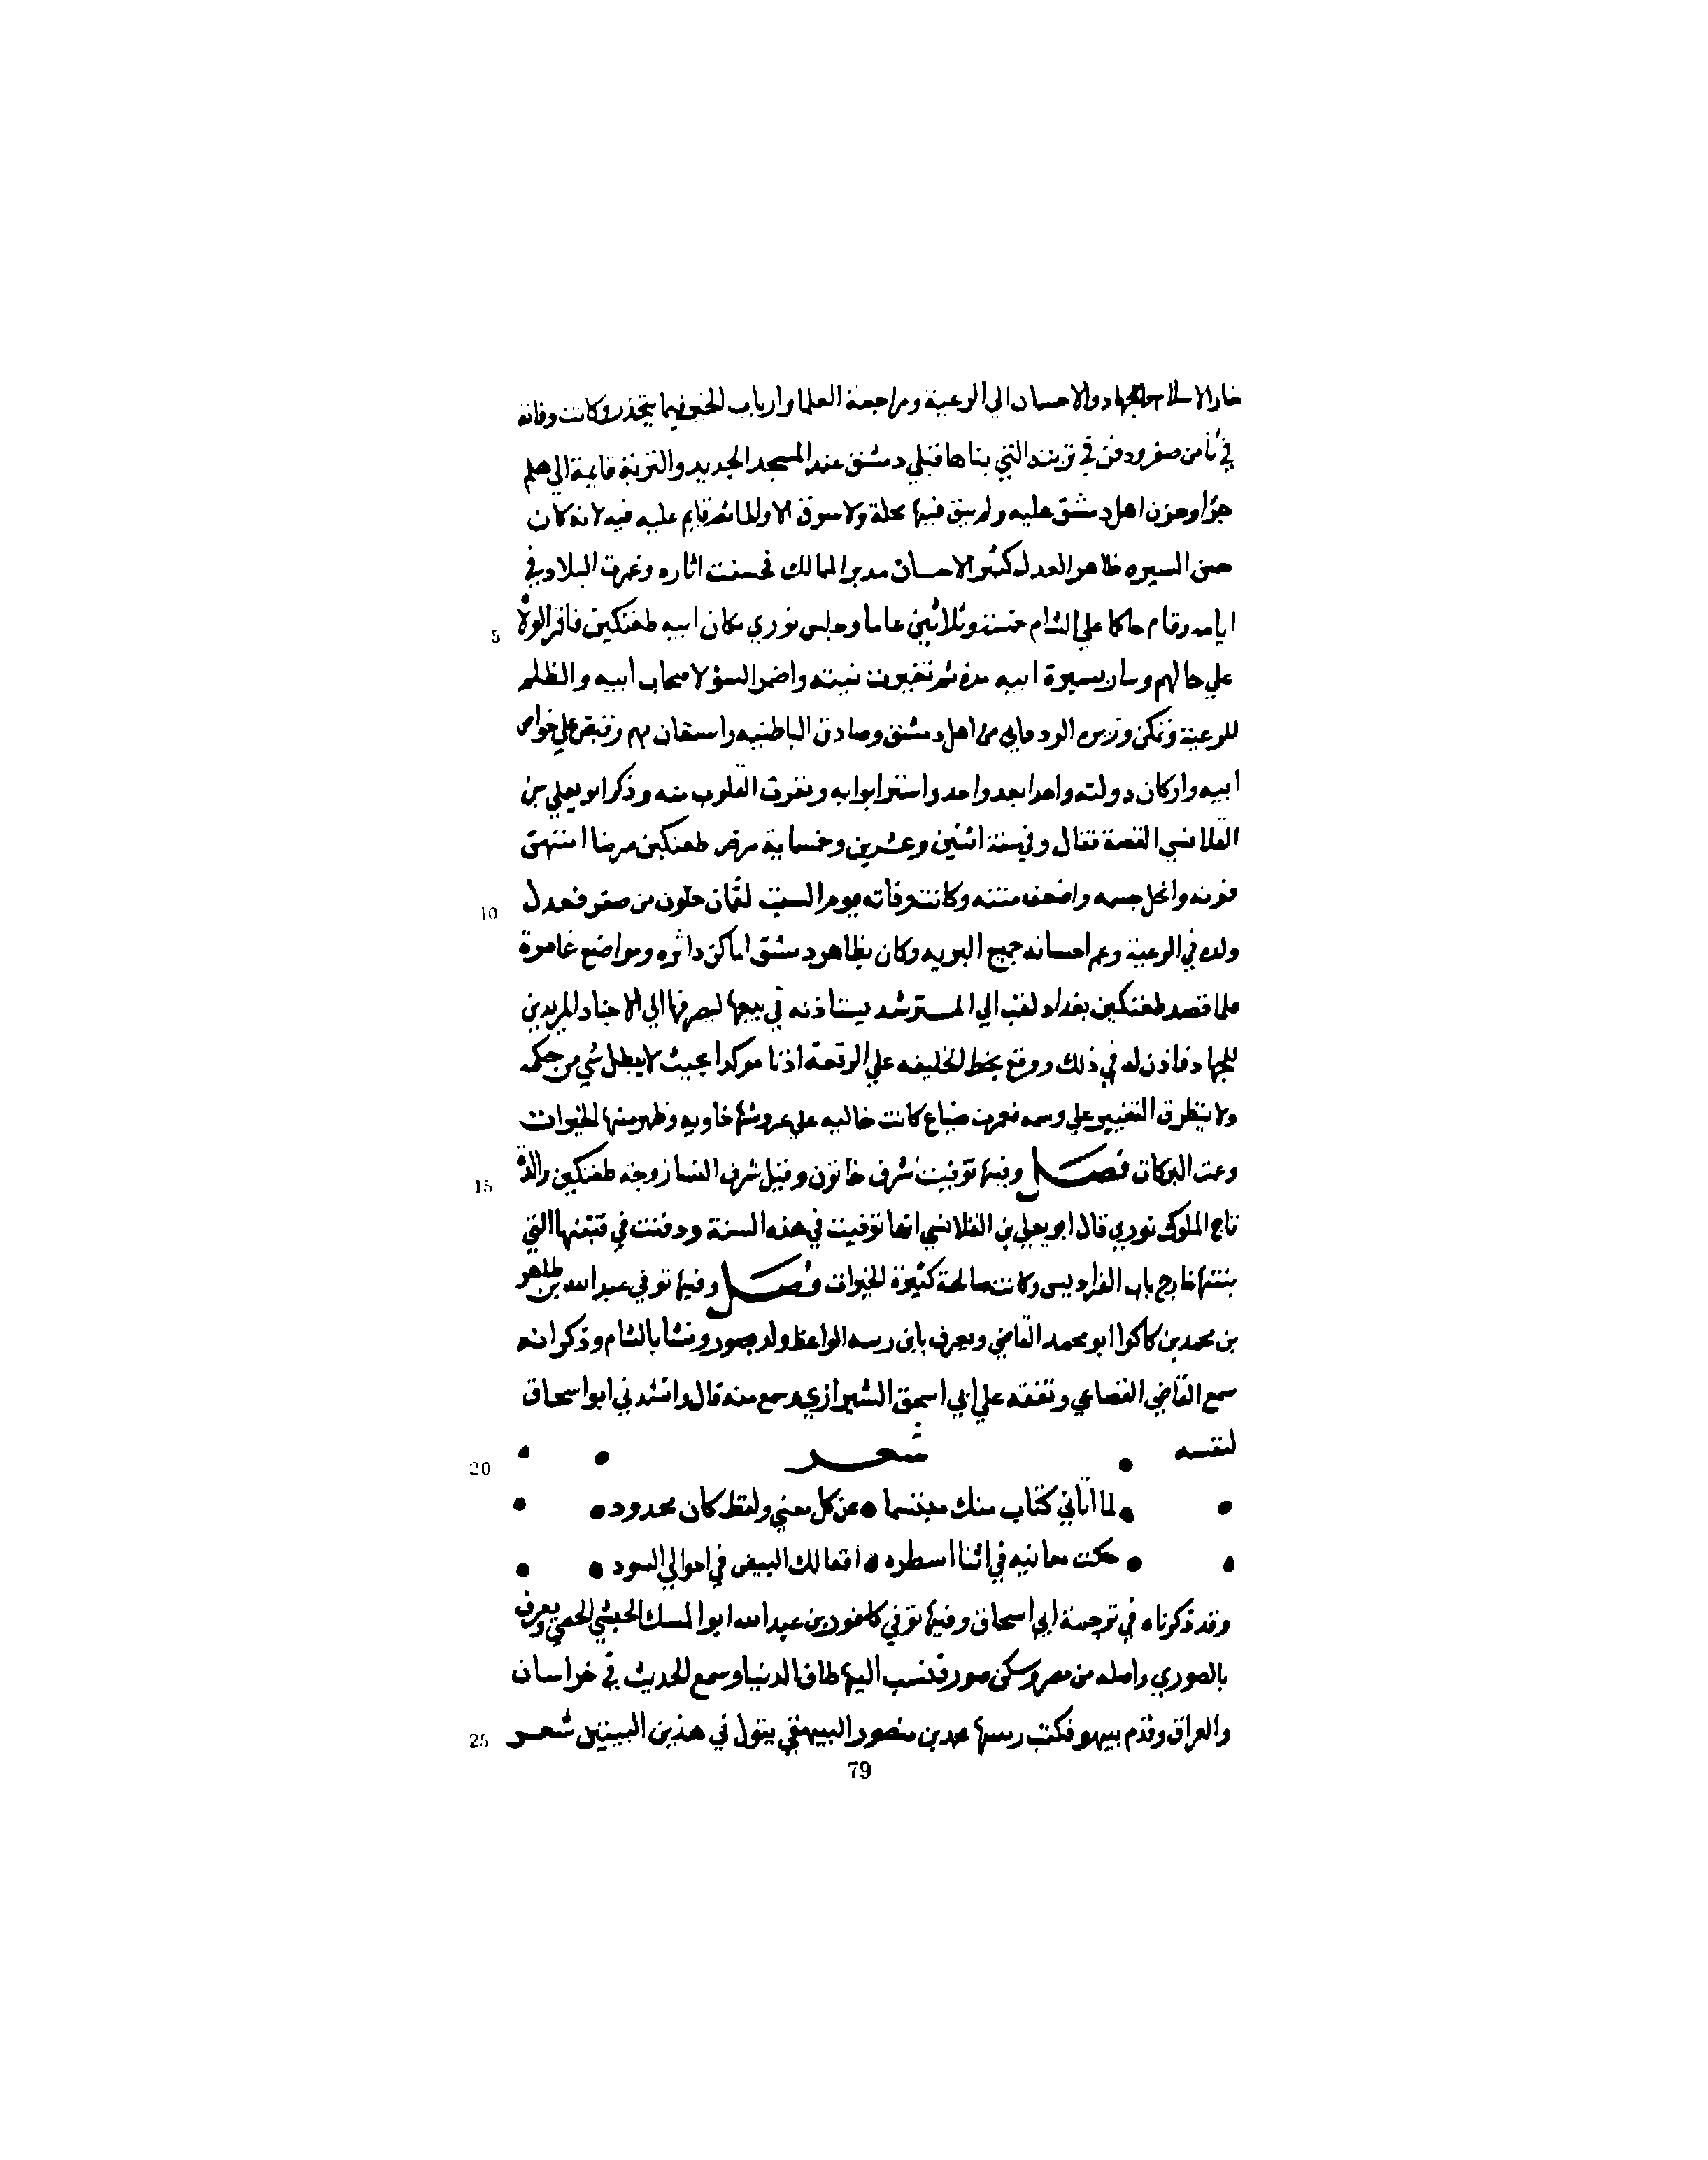 منار الاسلام والجهاد والاحسان الي الرعية ومراجعة العلما وارباب الخير فيما يتجدد وكانت وفاته
في ثامن صفر ودفن في تربته التي بناها قبلي دمشق عند المسجد الجديد والتربة قايمة الي هلم
جرا وحزن اهل دمشق عليه ولم يبق فيها محلة ولا سوق الا والماتم قايم عليه فيه لانه كان
حسن السيره ظاهر العدل كثير الاحسان مدبر الممالك فحسنت اثاره وعمرت البلاد في
ايامه وقام حاكما علي الشام خمسة وثلاثين عاما وجلس نوري مكان ابيه طغتكين فاقر الولاة
5
علي حالهم وسار بسيرة ابيه مدة ثم تغيرت نيته واضمر السؤ لاصحاب ابيه والظلم
للرعية وتمكن وزيره المزدقاني من اهل دمشق وصادق الباطنيه واستعان بهم وقبض علي خواص
ابيه واركان دولته واحدا بعد واحد واستتر ابوابه ونفرت القلوب منه وذكر ابو يعلي بن
القلانسي القصة فقال وفي سنة اثنين وعشرين وخمسماية مرض طغتكين مرضا انتهك
قوته وانحل جسمه واضعف متنه وكانت وفاته يوم السبت لثمان خلون من صفر فعدل
10
ولده في الرعية وعم احسانه جميع البريه وكان بظاهر دمشق اماكن داثره ومواضع غامرة
فلما قصد طغتكين بغداد كتب الي المسترشد يستاذنه في بيعها ليصرفها الي الاجناد المريدين
للجهاد فاذن له في ذلك ووقع بخط الخليفه علي الرقعة اذنا موكدا بحيث لا يبطل شي من حكمه
ولا يتطرق التغيير علي رسمه فعمرت ضياع كانت خاليه علي عروشها خاويه وظهر منها الخيرات
وعمت البركات فصل وفيها توفيت شرف خاتون وقيل شرف النسا زوجة طغتكين والدة
15
تاج الملوك نوري قال ابو يعلي بن القلانسي انها توفيت في هذه السنة ودفنت في قبتها التي
بنتها خارج باب الفراديس وكانت صالحة كثيرة الخيرات فصل وفيها توفي عبد الله بن طاهر
بن محمد بن كاكوا ابو محمد القاضي ويعرف بابن رسه الواعظ ولد بصور ونشا بالشام وذكر انه
سمع القاضي القضاعي وتفقه علي ابي اسحق الشيرازي وسمع منه قال وانشدني ابو اسحاق
لنفسه شعر
20
لما اتاني كتاب منك مبتسما • عن كل معني ولفظ كان محدود •
حكت معانيه في اثنا اسطره • افعالك البيض في احوالي السود •
وقد ذكرناه في ترجمة ابي اسحاق وفيها توفي كافور بن عبد الله ابو المسك الحبشي الخصي ويعرف
بالصوري واصله من مصر وسكن صور فنسب اليها طاف الدنيا وسمع الحديث في خراسان
والعراق وقدم بيهق فكتب ريسها محمد بن منصور البيهقي يقول في هذين البيتين شعر
25
79